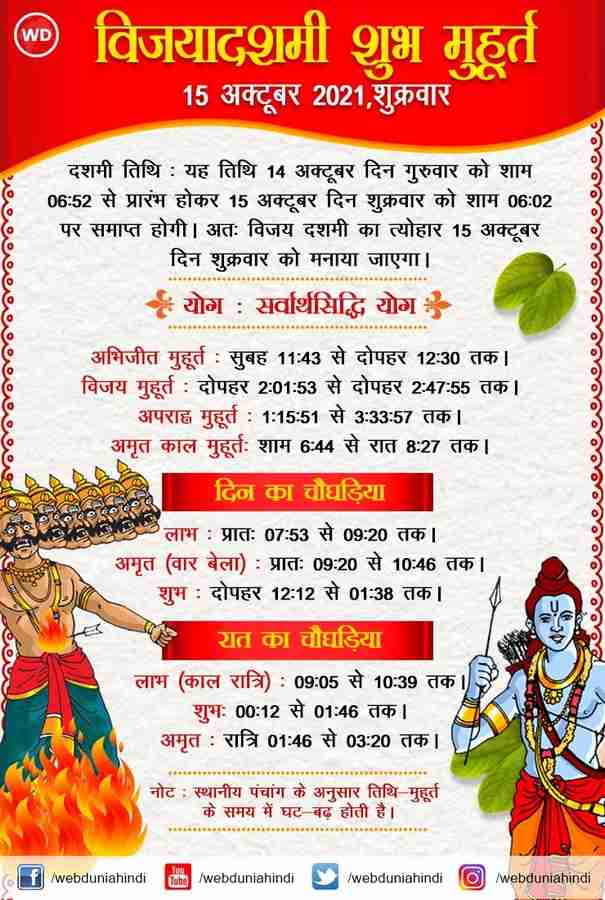 WD
विजयादशमी शुभ मुहूर्त
15 अक्टूबर 2021,शुक्रवार
दशमी तिथि : यह तिथि 14 अक्टूबर दिन गुरुवार को शाम
06:52 से प्रारंभ होकर 15 अक्टूबर दिन शुक्रवार को शाम 06:02
पर समाप्त होगी। अतः विजय दशमी का त्योहार 15 अक्टूबर
दिन शुक्रवार को मनाया जाएगा।
योग : सर्वार्थसिद्धि योग
अभिजीत मुहूर्त : सुबह 11:43 से दोपहर 12:30 तक।
विजय मुहूर्त : दोपहर 2:01:53 से दोपहर 2:47:55 तक।
अपराह्न मुहूर्त : 1:15:51 से 3:33:57 तक।
अमृत काल मुहूर्तः शाम 6:44 से रात 8:27 तक।
दिन का चौघड़िया
लाभ : प्रातः 07:53 से 09:20 तक।
अमृत (वार बेला) : प्रातः 09:20 से 10:46 तक।
शुभ : दोपहर 12:12 से 01:38 तक।
रात का चौघड़िया
लाभ (काल रात्रि) : 09:05 से 10:39 तक।
शुभः 00:12 से 01:46 तक।
अमृत : रात्रि 01:46 से 03:20 तक।
नोट : स्थानीय पंचांग के अनुसार तिथि-मुहूर्त
के समय में घट-बढ़ होती है।
f /webduniahindi You Tube /webduniahindi /webduniahindi /webduniahindi